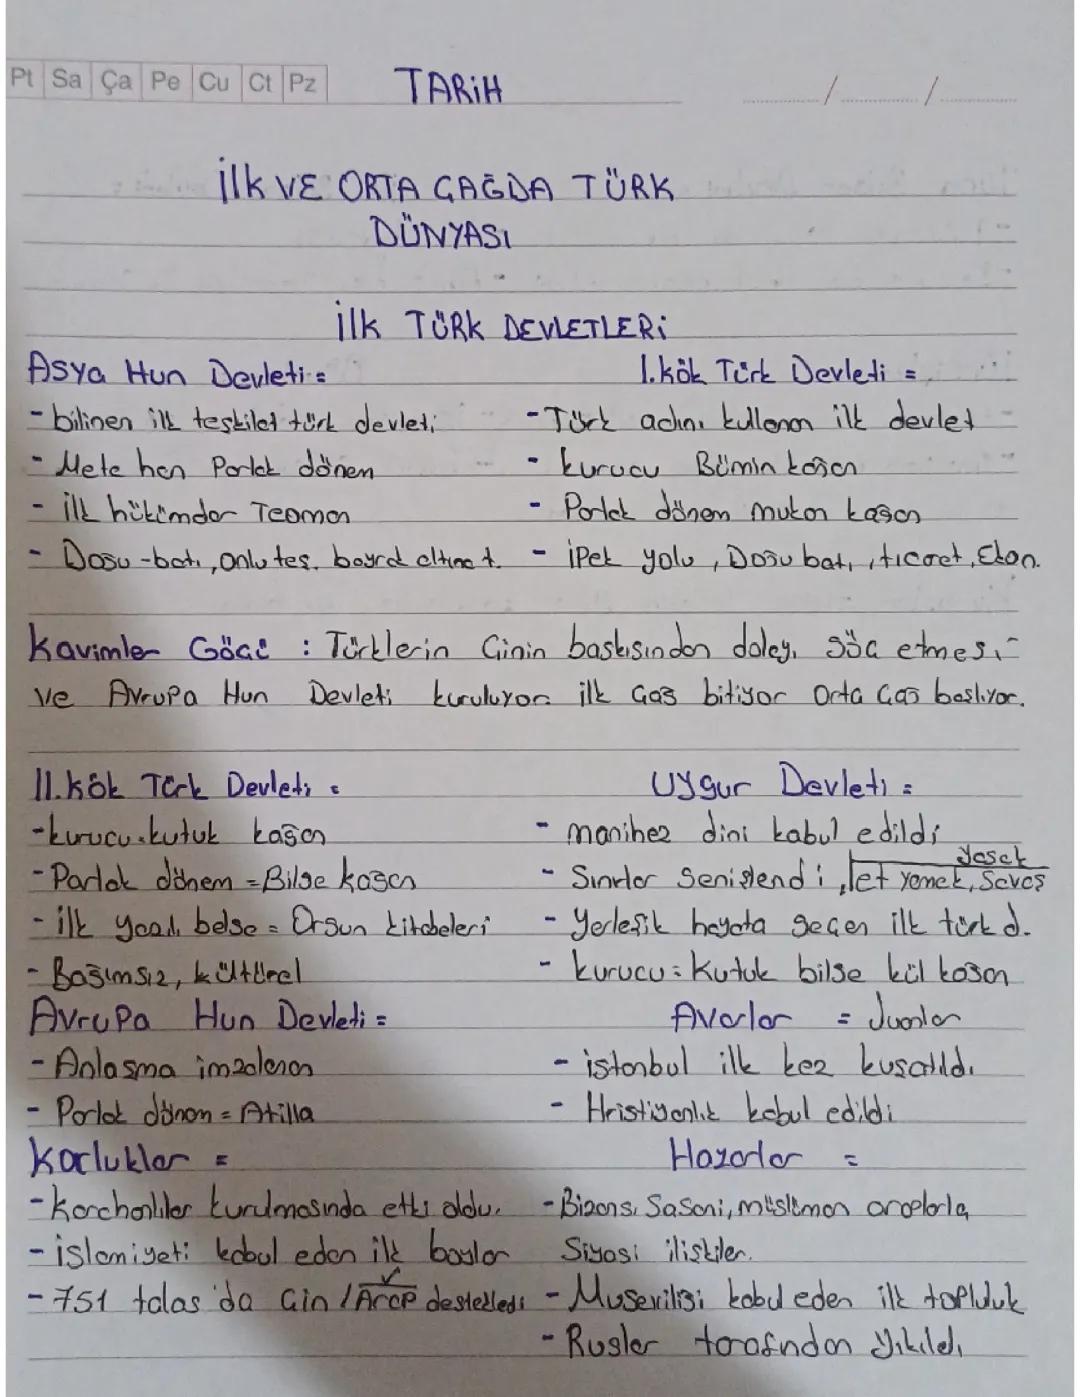 Pt Sa Ça Pe Cu Ct Pz
TARiH
İlk VE ORTA ÇAĞDA TÜRK
DÜNYASI
İlk TÜRK DEVLETLERİ
Asya Hun Devleti =
- bilinen ilk teşkilat türk devleti
- Mete han Parlak dönem
- İlk hükümdar Teoman
- Doğu-batı, onlu teş. bayrak altına t.
I. kök Türk Devleti =
- Türk adını kullanan ilk devlet
- kurucu Bümin kağan
- Parlak dönem mukan kağan
- İpek yolu, Doğu batı, ticaret, Ekon.
Kavimler Göçü : Türklerin Çinin baskısından dolayı göç etmesi
ve Avrupa Hun Devleti kuruluyor. ilk Çağ bitiyor Orta Çağ başlıyor.
II. kök Türk Devleti =
- kurucu = kutuk kağan
- Parlak dönem = Bilge kağan
- ilk yazılı belge = Orgun kitabeleri
- Bağımsız, kültürel
Uygur Devleti =
- manihez dini kabul edildi
- Sınırlar genişlendi, et yemek, Savaş yasak
- Yerleşik hayata geçen ilk türk d.
- kurucu = Kutuk bilge kül kağan
Avrupa Hun Devleti =
- Anlaşma imzalanan
- Parlak dönem = Atilla
Avarlar = Juanlar
- istanbul ilk kez kuşatıldı
- Hristiyanlık kabul edildi
Karluklar =
- karahanlılar kurulmasında etki oldu.
- islamiyeti kabul eden ilk boylar
- 751 talas'da Çin / Arap ✓ destekledi
Hazarlar =
- Bizans, Sasani, müslüman araplarla
Siyasi ilişkiler.
- Museviliği kabul eden ilk topluluk
- Ruslar tarafından yıkıldı